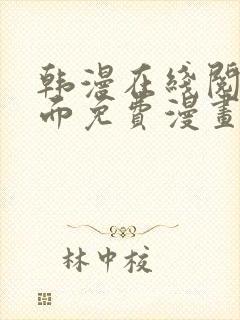 韩漫在线阅
而免费漫畫
林中校